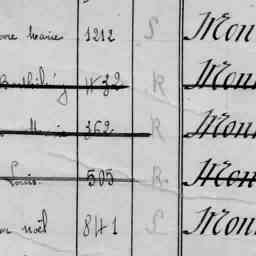 Marie 1212 S Mon
432 R Mon
Marie 362 R Mon
Louis 505 R Mon
noël 841 S Mon